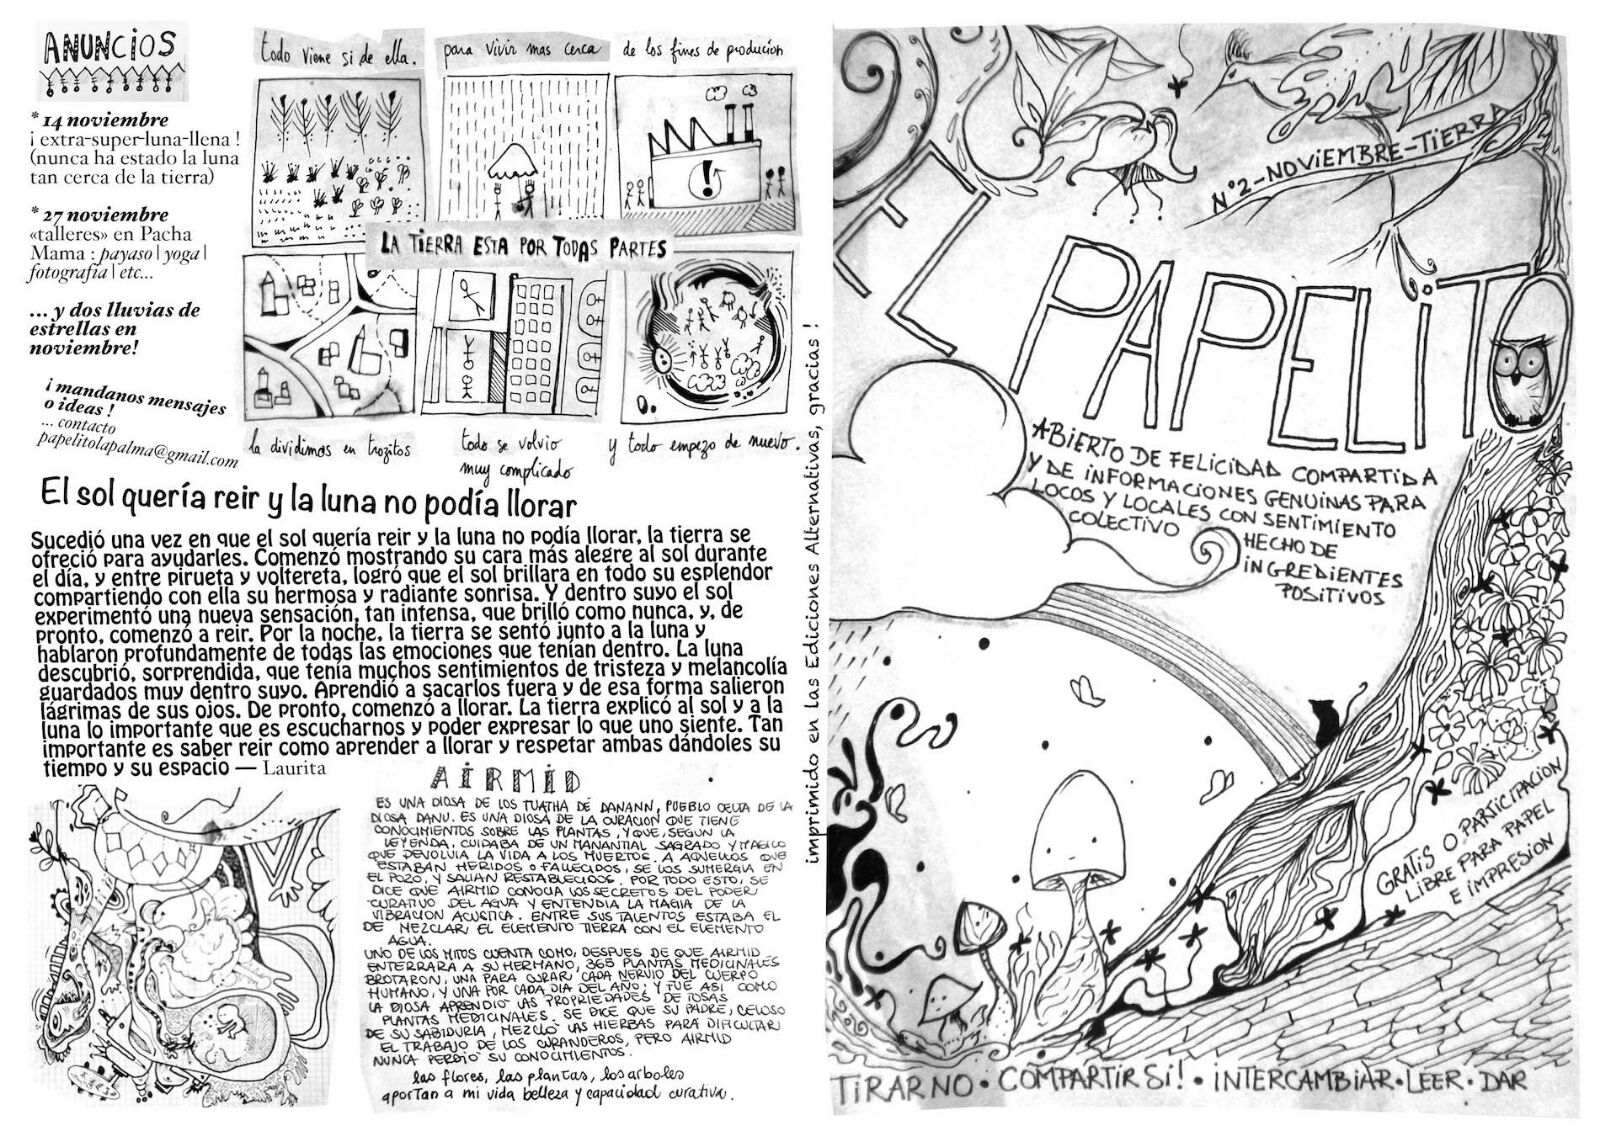 ANUNCIOS
* 14 noviembre
¡ extra-super-luna-llena !
(nunca ha estado la luna
tan cerca de la tierra)
* 27 noviembre
«talleres» en Pacha
Mama : payaso | yoga |
fotografia | etc...
... y dos lluvias de
estrellas en
noviembre!
¡ mandanos mensajes
o ideas !
... contacto
papelitolapalma@gmail.com
todo viene si de ella.
para vivir mas cerca
de los fines de producion
LA TIERRA ESTA POR TODAS PARTES
la dividimos en trozitos
todo se volvio
muy complicado
y todo empezo de nuevo.
El sol quería reir y la luna no podía llorar
Sucedió una vez en que el sol quería reir y la luna no podía llorar, la tierra se
ofreció para ayudarles. Comenzó mostrando su cara más alegre al sol durante
el día, y entre pirueta y voltereta, logró que el sol brillara en todo su esplendor
compartiendo con ella su hermosa y radiante sonrisa. Y dentro suyo el sol
experimentó una nueva sensación, tan intensa, que brilló como nunca, y, de
pronto, comenzó a reir. Por la noche, la tierra se sentó junto a la luna y
hablaron profundamente de todas las emociones que tenían dentro. La luna
descubrió, sorprendida, que tenía muchos sentimientos de tristeza y melancolía
guardados muy dentro suyo. Aprendió a sacarlos fuera y de esa forma salieron
lágrimas de sus ojos. De pronto, comenzó a llorar. La tierra explicó al sol y a la
luna lo importante que es escucharnos y poder expresar lo que uno siente. Tan
importante es saber reir como aprender a llorar y respetar ambas dándoles su
tiempo y su espacio — Laurita
AIRMID
ES UNA DIOSA DE LOS TUATHA DE DANANN, PUEBLO CELTA DE LA
DIOSA DANU. ES UNA DIOSA DE LA CURACION QUE TIENE
CONOCIMIENTOS SOBRE LAS PLANTAS, Y QUE, SEGUN LA
LEYENDA, CUIDABA DE UN MANANTIAL SAGRADO Y MAGICO
QUE DEVOLVIA LA VIDA A LOS MUERTOS. A AQUELLOS QUE
ESTABAN HERIDOS O FALLECIDOS, SE LOS SUMERGIA EN
EL POZO, Y SALIAN RESTABLECIDOS. POR TODO ESTO, SE
DICE QUE AIRMID CONOCIA LOS SECRETOS DEL PODER
CURATIVO DEL AGUA Y ENTENDIA LA MAGIA DE LA
VIBRACION ACUSTICA. ENTRE SUS TALENTOS ESTABA EL
DE MEZCLAR EL ELEMENTO TIERRA CON EL ELEMENTO
AGUA.
UNO DE LOS MITOS CUENTA COMO, DESPUES DE QUE AIRMID
ENTERRARA A SU HERMANO, 365 PLANTAS MEDICINALES
BROTARON, UNA PARA CURAR CADA NERVIO DEL CUERPO
HUMANO, Y UNA POR CADA DIA DEL AÑO; Y FUE ASI COMO
LA DIOSA APRENDIO LAS PROPRIEDADES DE TOSAS
PLANTAS MEDICINALES. SE DICE QUE SU PADRE, CELOSO
DE SU SABIDURIA, MEZCLO LAS HIERBAS PARA DIFICULTAR
EL TRABAJO DE LOS CURANDEROS, PERO AIRMID
NUNCA PERDIO SU CONOCIMIENTOS.
las flores, las plantas, los arboles
aportan a mi vida belleza y capacidad curativa.
imprimido en las Ediciones Alternativas, gracias !
N°2-NOVIEMBRE-TIERRA
EL PAPELITO
ABIERTO DE FELICIDAD COMPARTIDA
Y DE INFORMACIONES GENUINAS PARA
LOCOS Y LOCALES CON SENTIMIENTO
COLECTIVO
HECHO DE
INGREDIENTES
POSITIVOS
GRATIS O PARTICIPACION
LIBRE PARA PAPEL
E IMPRESION
TIRAR NO • COMPARTIR SI! • INTERCAMBIAR • LEER • DAR